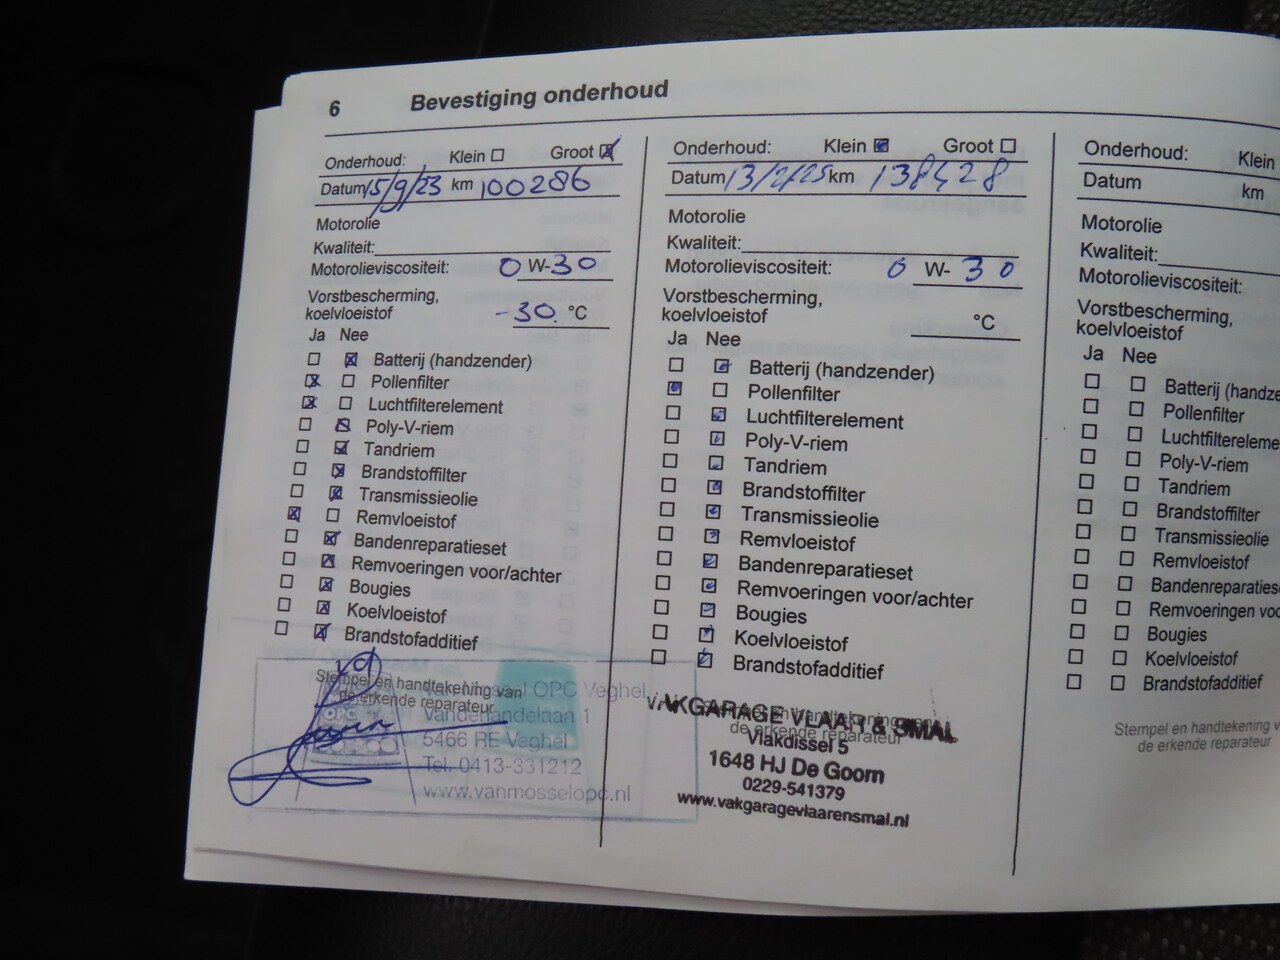 6 Bevestiging onderhoud
Onderhoud: Klein Groot
Datum 15/9/23 km 100286
Motorolie
Kwaliteit:
Motorolieviscositeit: 0 W-30
Vorstbescherming,
koelvloeistof -30 °C
Ja Nee
Batterij (handzender)
Pollenfilter
Luchtfilterelement
Poly-V-riem
Tandriem
Brandstoffilter
Transmissieolie
Remvloeistof
Bandenreparatieset
Remvoeringen voor/achter
Bougies
Koelvloeistof
Brandstofadditief
Stempel en handtekening van
de erkende reparateur
OPC Veghel
1
5466 RE Veghel
Tel. 0413-331212
www.vanmosselopc.nl
OPC
Onderhoud: Klein Groot
Datum 13/2/25 km 138428
Motorolie
Kwaliteit:
Motorolieviscositeit: 0 W-30
Vorstbescherming,
koelvloeistof °C
Ja Nee
Batterij (handzender)
Pollenfilter
Luchtfilterelement
Poly-V-riem
Tandriem
Brandstoffilter
Transmissieolie
Remvloeistof
Bandenreparatieset
Remvoeringen voor/achter
Bougies
Koelvloeistof
Brandstofadditief
de erkende reparateur
VAKGARAGE VLAAR & SMAL
Vlakdissel 5
1648 HJ De Goorn
0229-541379
www.vakgaragevlaarensmal.nl
Onderhoud: Klein
Datum km
Motorolie
Kwaliteit:
Motorolieviscositeit:
Vorstbescherming,
koelvloeistof
Ja Nee
Batterij (handze
Pollenfilter
Luchtfiltereleme
Poly-V-riem
Tandriem
Brandstoffilter
Transmissieolie
Remvloeistof
Bandenreparaties
Remvoeringen voo
Bougies
Koelvloeistof
Brandstofadditief
Stempel en handtekening v
de erkende reparateur